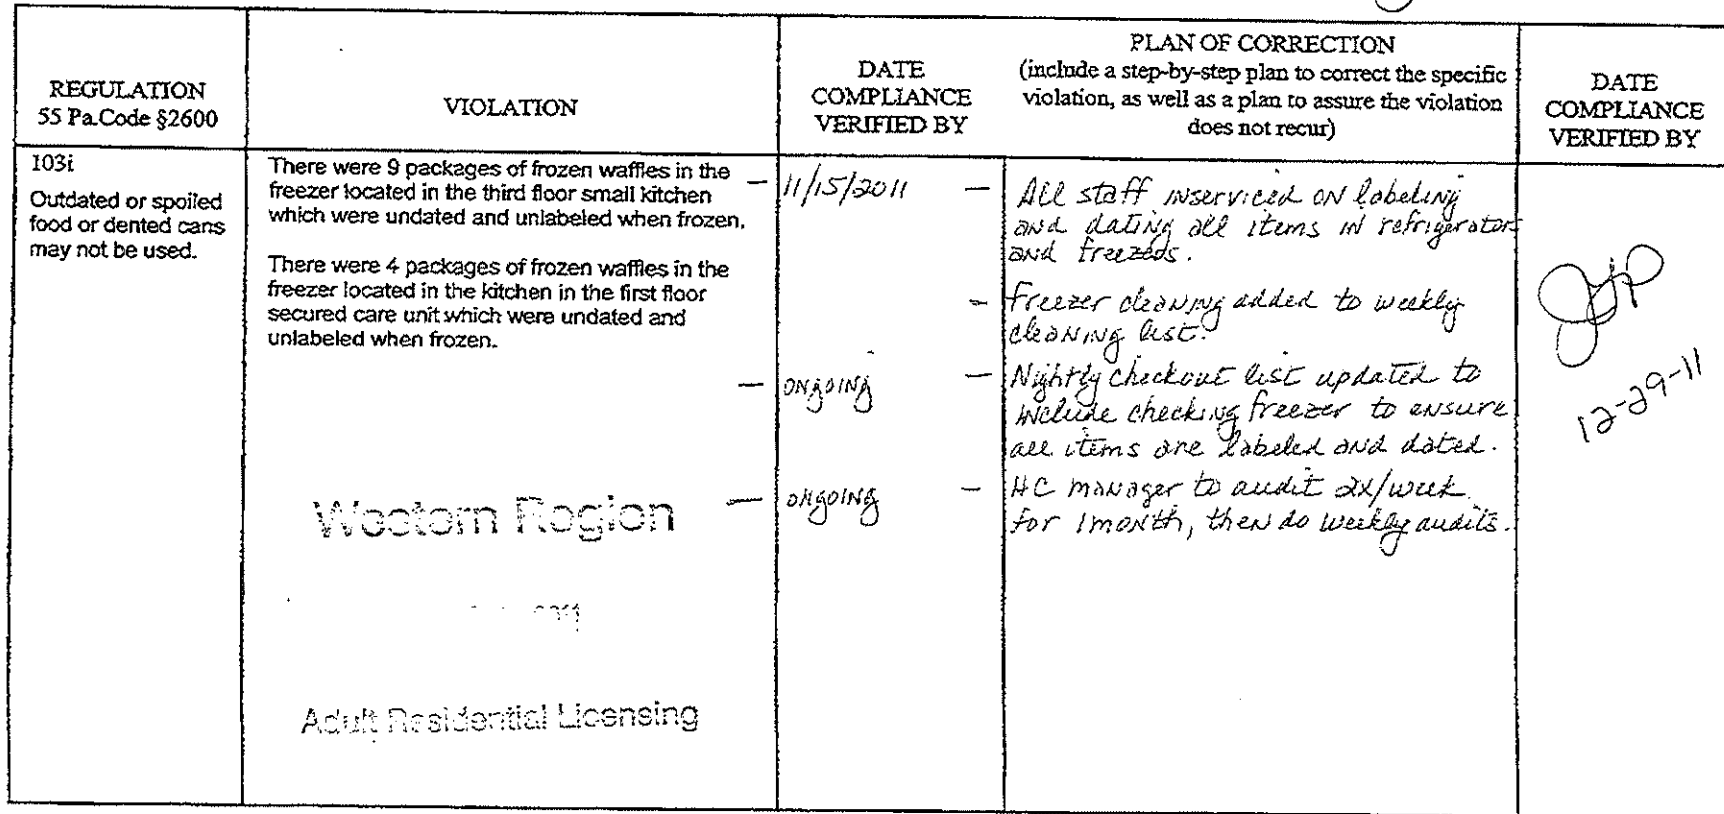 REGULATION
55 Pa.Code §2600
VIOLATION
DATE
COMPLIANCE
VERIFIED BY
PLAN OF CORRECTION
(include a step-by-step plan to correct the specific
violation, as well as a plan to assure the violation
does not recur)
DATE
COMPLIANCE
VERIFIED BY
103i
Outdated or spoiled
food or dented cans
may not be used.
There were 9 packages of frozen waffles in the
freezer located in the third floor small kitchen
which were undated and unlabeled when frozen.
There were 4 packages of frozen waffles in the
freezer located in the kitchen in the first floor
secured care unit which were undated and
unlabeled when frozen.
Western Region
Adult Residential Licensing
— 11/15/2011
— ongoing
— ongoing
— All staff inserviced on labeling
and dating all items in refrigerators
and freezers.
— Freezer cleaning added to weekly
cleaning list.
— Nightly checkout list updated to
include checking freezer to ensure
all items are labeled and dated.
— HC manager to audit 2x/week
for 1 month, then do weekly audits.
12-29-11